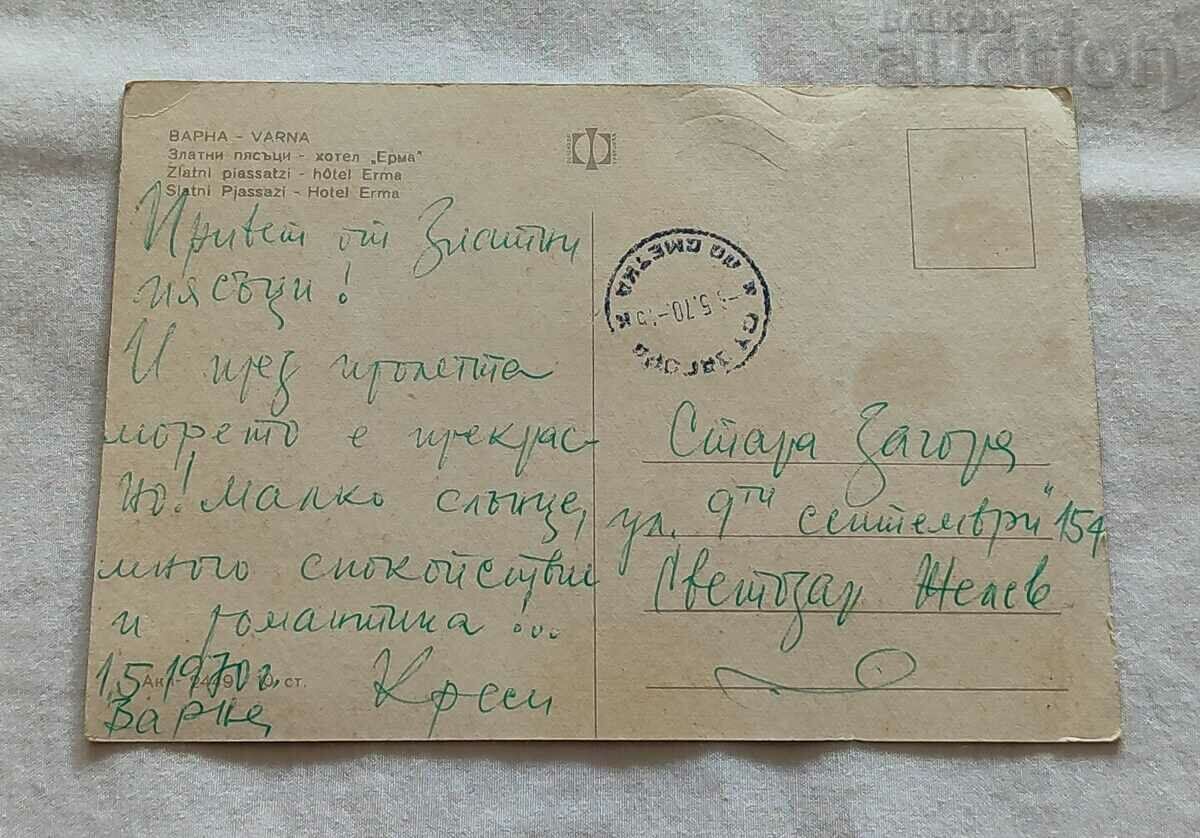 BALKAN
auction
ВАРНА - VARNA
Златни пясъци - хотел „Ерма"
Zlatni piassatzi - hôtel Erma
Slatni Pjassazi - Hotel Erma
Привет от Златни
пясъци!
И през пролетта
морето е прекрас-
но! Малко слънце,
много спокойствие
и романтика!...
1.5.1970 г.
Варна
Креси
ст.
ПО СМЕТКА
СТ. ЗАГОРА
5.70
Стара Загора
ул. 9ти септември" 154
Светозар Желев